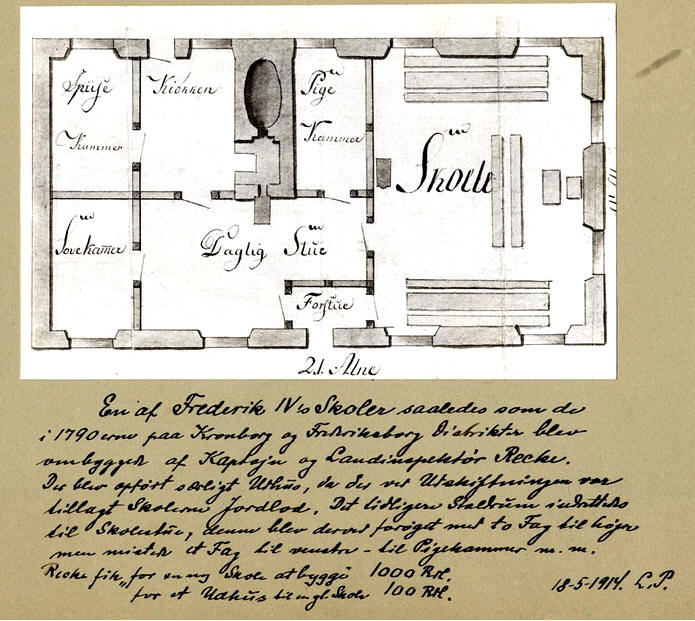 Spise
Kammer
Kiökken
Pige
Kammer
en
Skole
Sovekamer
Daglig Stue
Forstue
21. Alne
En af Frederik IV's Skoler saaledes som de
i 1790erne paa Kronborg og Frederiksborg Distrikter blev
ombygget af Kaptajn og Landinspektør Recke.
Der blev opført særligt Udhus, da der ved Udskiftningen var
tillagt Skolerne Jordlod. Det tidligere Staldrum indrettedes
til Skolestue, denne blev derved forøget med to Fag til højre
men mistede et Fag til venstre - til Pigekammer m. m.
Recke fik „for en ny Skole at bygge 1000 Rdl.
for et Udhus til en gl. Skole 100 Rdl.
18-5-1914. L.P.